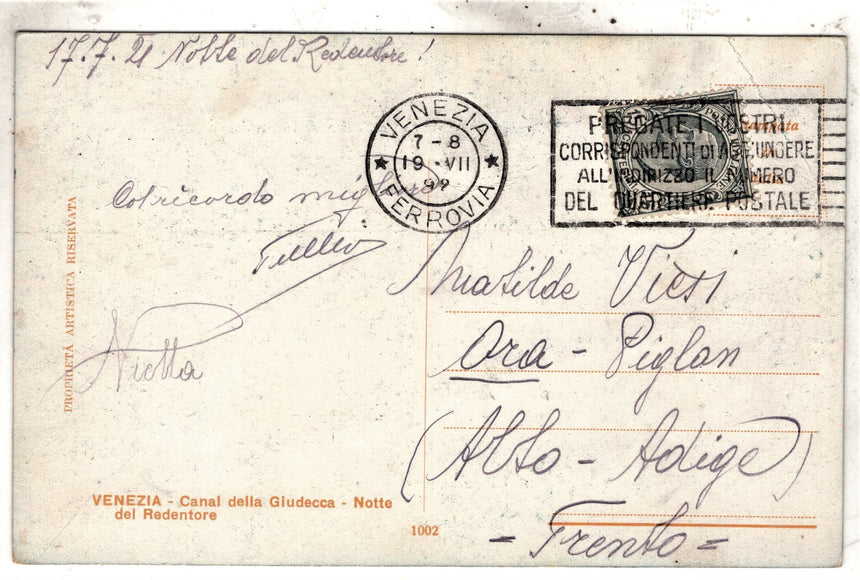 17.7.21 Notte del Redentore!
VENEZIA
7-8
19·VII
FERROVIA
PREGATE I VOSTRI
CORRISPONDENTI DI AGGIUNGERE
ALL'INDIRIZZO IL NUMERO
DEL QUARTIERE POSTALE
Col ricordo migliore
Tullio
Nietta
Matilde Viesi
Ora - Piglon
(Alto - Adige)
= Trento =
PROPRIETÀ ARTISTICA RISERVATA
VENEZIA - Canal della Giudecca - Notte
del Redentore
1002